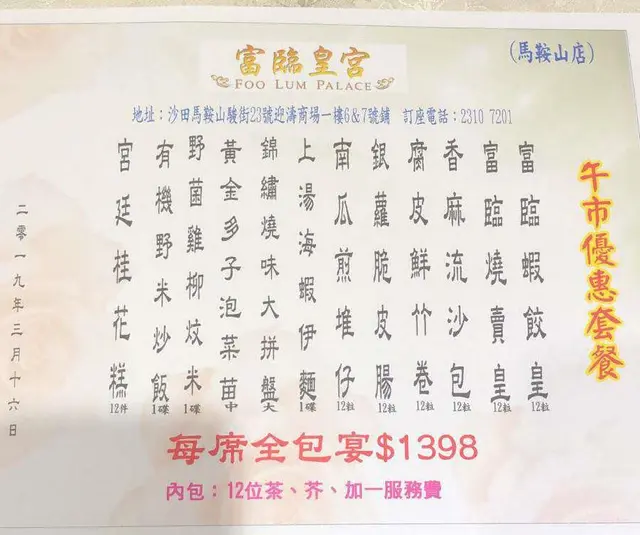 富臨皇宮
FOO LUM PALACE
(馬鞍山店)
地址：沙田馬鞍山駿街23號迎濤商場一樓6&7號鋪 訂座電話：2310 7201
午市優惠套餐
富臨蝦餃皇 12粒
富臨燒賣皇 12粒
香麻流沙包 12粒
腐皮鮮竹卷 12粒
銀蘿脆皮腸 12粒
南瓜煎堆仔 12粒
上湯海蝦伊麵 1碟
錦繡燒味大拼盤 大
黃金多子泡菜苗 中
野菌雞柳炆米 1碟
有機野米炒飯 1碟
宮廷桂花糕 12件
二零一九年三月十六日
每席全包宴$1398
內包：12位茶、芥、加一服務費